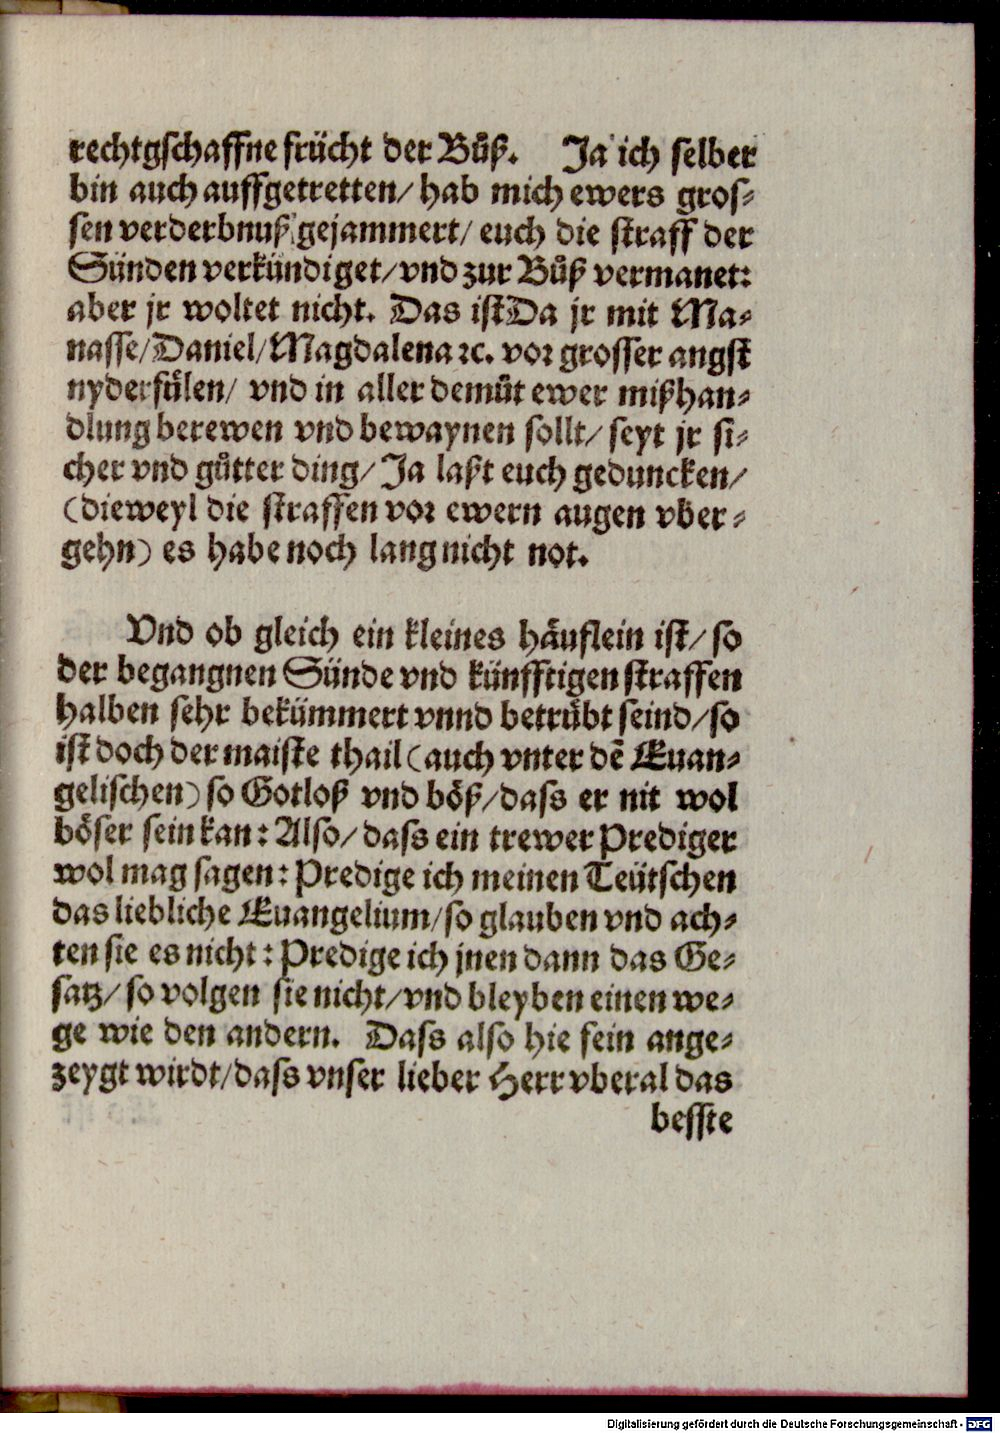 rechtgschaffne frücht der Bůß. Ja ich selber
bin auch auffgetretten/ hab mich ewers gros⸗
sen verderbnuß gejammert/ euch die straff der
Sünden verkündiget/ vnd zur Bůß vermanet:
aber jr woltet nicht. Das ist Da jr mit Ma⸗
nasse/ Daniel/ Magdalena ꝛc. vor grosser angst
nyderfůlen/ vnd in aller demůt ewer mißhan⸗
dlung berewen vnd bewaynen sollt/ seyt jr si⸗
cher vnd gůtter ding/ Ja laßt euch geduncken/
(dieweyl die straffen vor ewern augen vber⸗
gehn) es habe noch lang nicht not.
Vnd ob gleich ein kleines häuflein ist/ so
der begangnen Sünde vnd künfftigen straffen
halben sehr bekümmert vnnd betrübt seind/ so
ist doch der maiste thail (auch vnter dẽ Euan⸗
gelischen) so Gotloß vnd böß/ dass er nit wol
böser sein kan: Also/ dass ein trewer Prediger
wol mag sagen: Predige ich meinen Teütschen
das liebliche Euangelium/ so glauben vnd ach⸗
ten sie es nicht: Predige ich jnen dann das Ge⸗
satz/ so volgen sie nicht/ vnd bleyben einen we⸗
ge wie den andern. Dass also hie fein ange⸗
zeygt wirdt/ dass vnser lieber Herr vberal das
besste
Digitalisierung gefördert durch die Deutsche Forschungsgemeinschaft - DFG